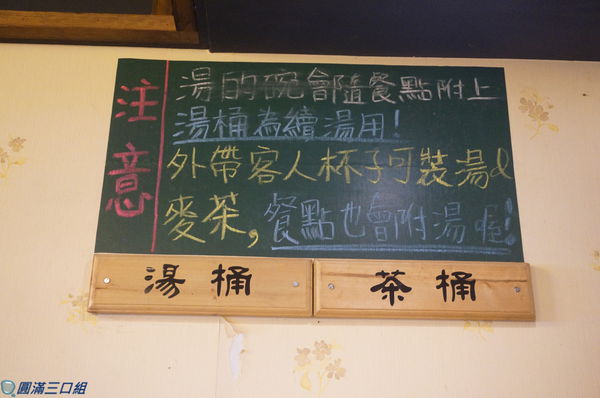 注意
湯的碗會隨餐點附上
湯桶為續湯用!
外帶客人杯子可裝湯&
麥茶,餐點也會附湯喔!
湯桶
茶桶
圓滿三口組